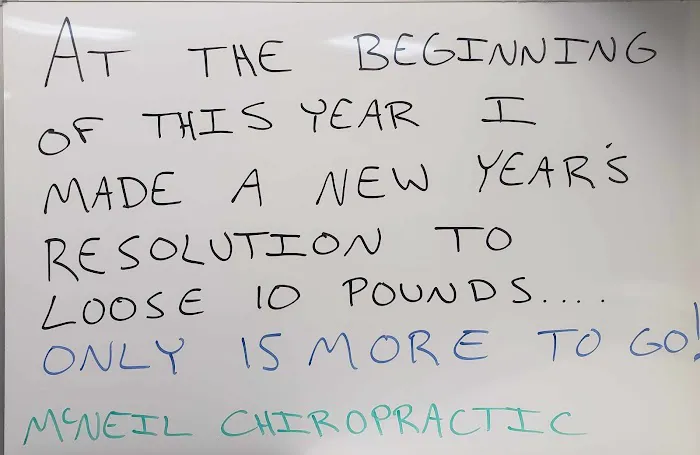 AT THE BEGINNING
OF THIS YEAR I
MADE A NEW YEAR'S
RESOLUTION TO
LOOSE 10 POUNDS....
ONLY 15 MORE TO GO!
McNEIL CHIROPRACTIC